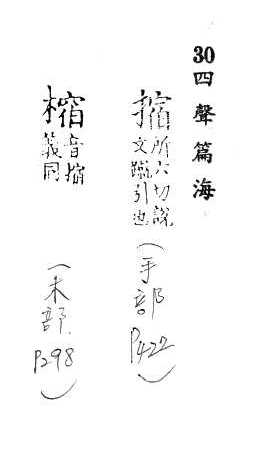 30四聲篇海
摍所六切說
文蹴引也
(手部 P422)
樎音摍
義同
(木部 P298)